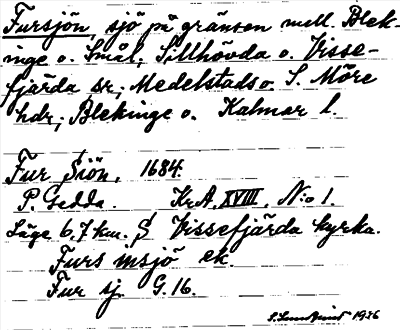 Fursjön, sjö på gränsen mell. Blek-
inge o. Smål., Sillhövda o. Visse-
fjärda sr; Medelstads o. S. Möre
hdr; Blekinge o. Kalmar l.
Fur Siön, 1684.
P. Gedda. Kr.A. XVIII, N:o 1.
Läge 6,7 km. S Vissefjärda kyrka.
Furs msjö ek.
Fur sj. G. 16.
1926